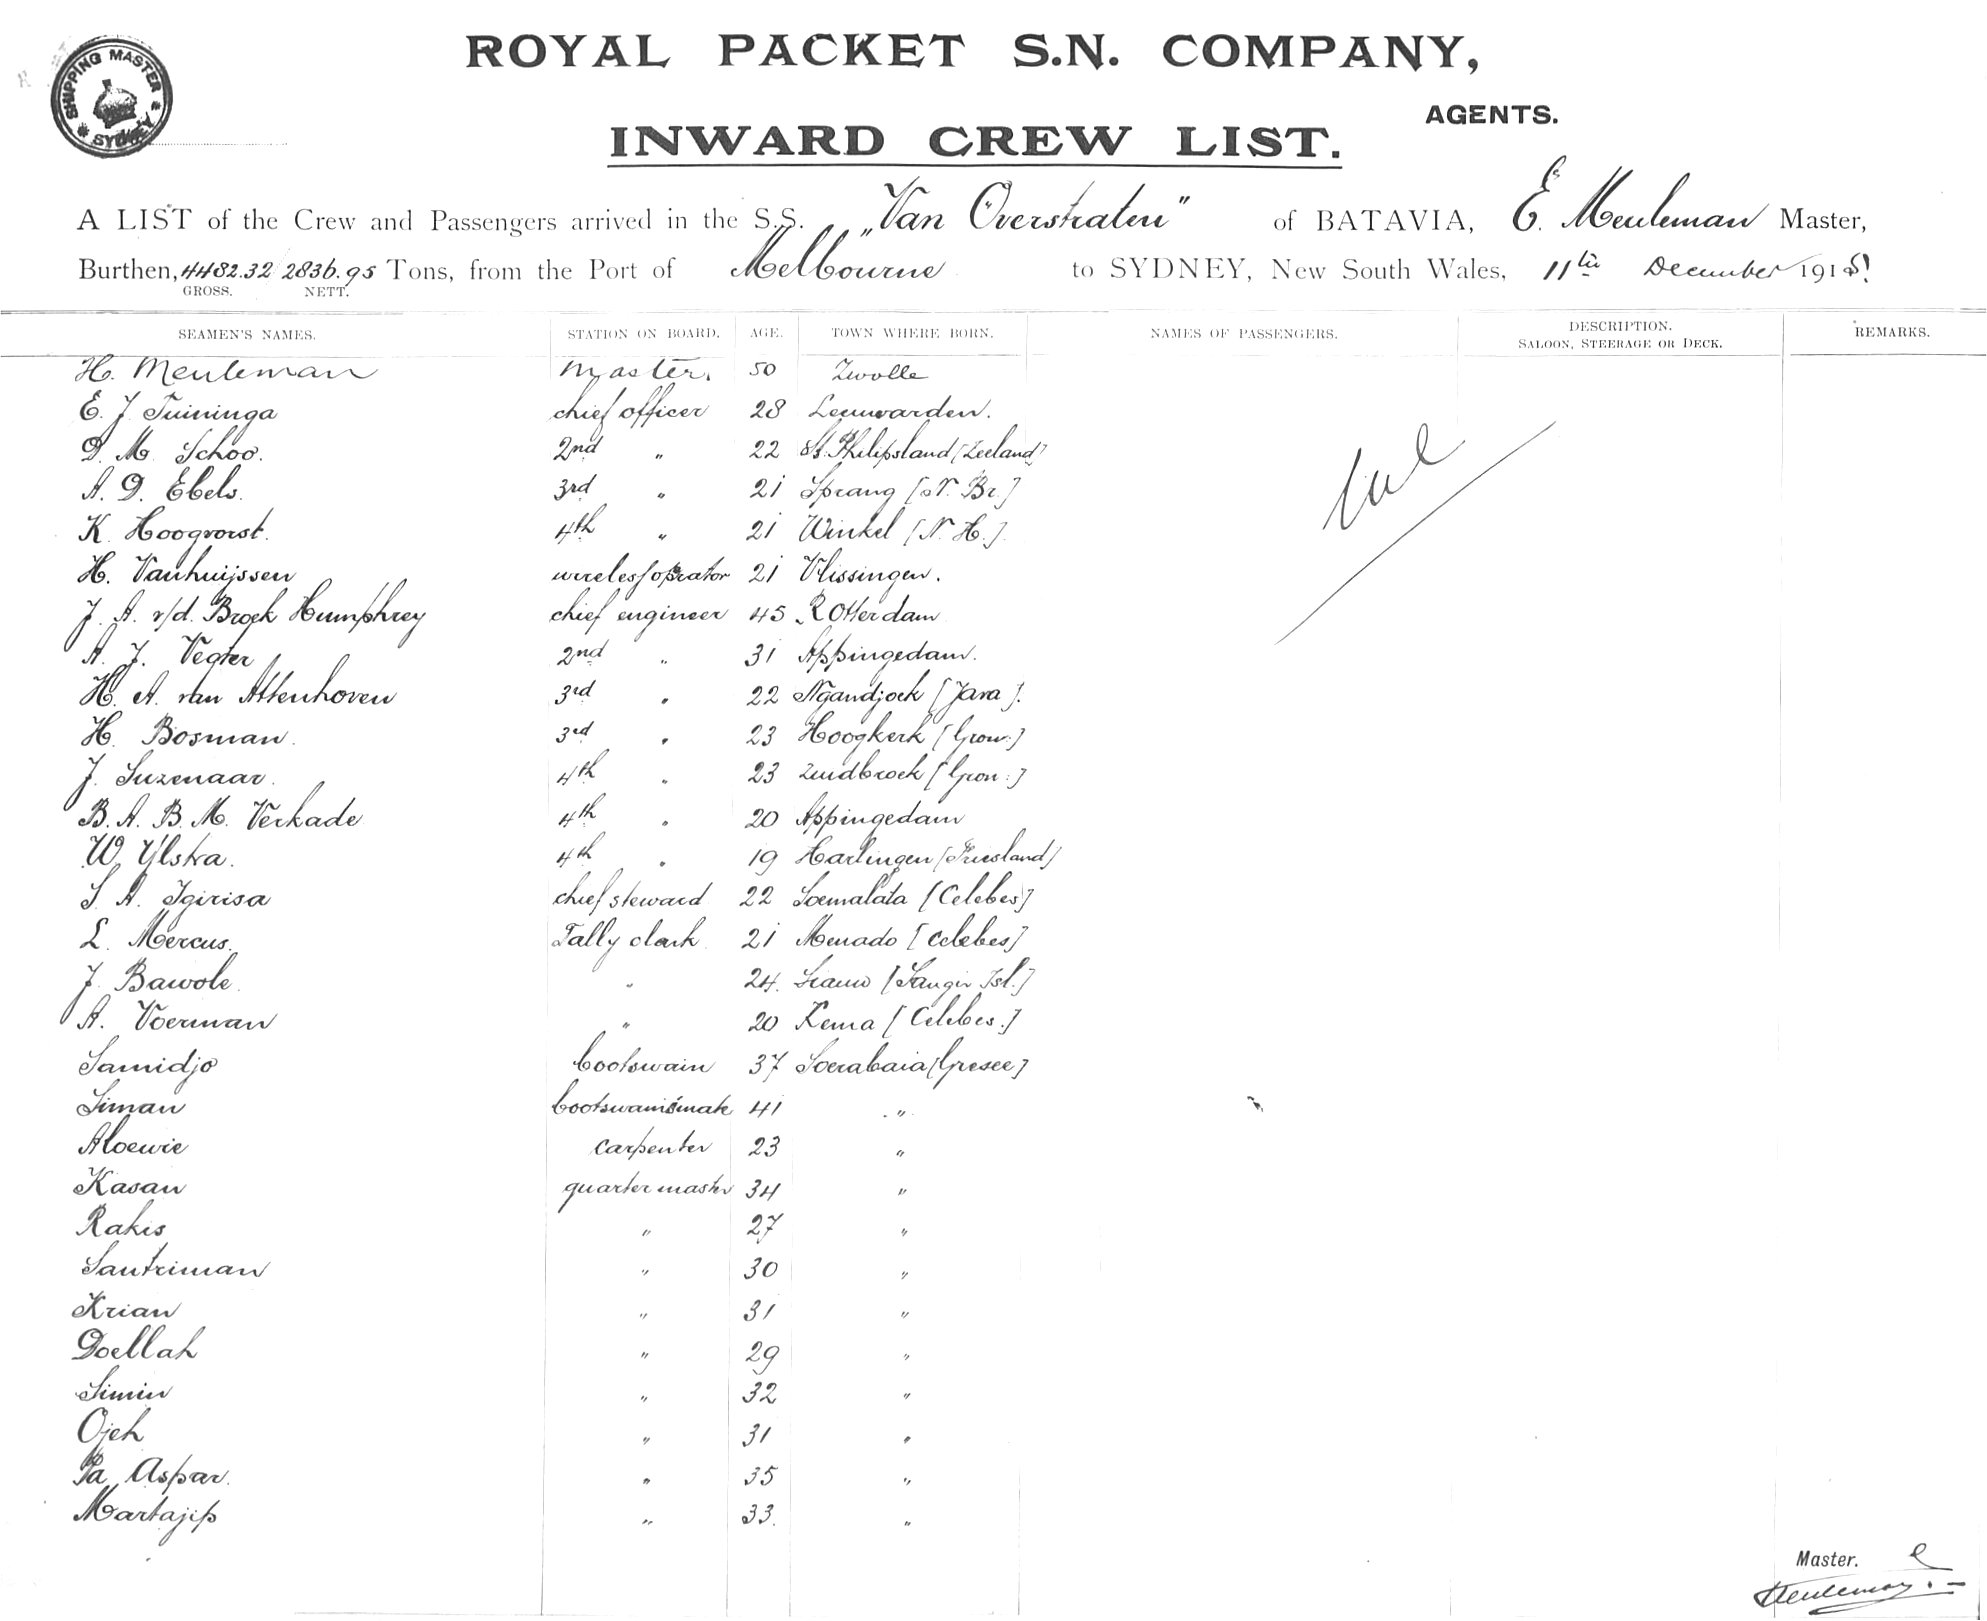 SHIPPING MASTER
SYDNEY
ROYAL PACKET S.N. COMPANY,
AGENTS.
INWARD CREW LIST.
A LIST of the Crew and Passengers arrived in the S.S. "Van Overstraten" of BATAVIA, E. Meuleman Master,
Burthen, 4482.32 2836.95 Tons, from the Port of Melbourne to SYDNEY, New South Wales, 11th December 1918!
GROSS. NETT.
SEAMEN'S NAMES. STATION ON BOARD. AGE. TOWN WHERE BORN. NAMES OF PASSENGERS. DESCRIPTION. SALOON, STEERAGE OR DECK. REMARKS.
H. Meuleman master. 50 Zwolle
E. J. Tuininga chief officer 28 Leeuwarden.
D. M. Schoo. 2nd " 22 St. Philipsland [Zeeland]
A. D. Ebels. 3rd " 21 Sprang [N. Br.]
K. Hoogvorst. 4th " 21 Winkel [N. H.]
H. Vanhuijssen wireless operator 21 Vlissingen.
J. A. v/d. Broek Humphrey chief engineer 45 Rotterdam
A. J. Vegter 2nd " 31 Appingedam.
H. A. van Attenhoven 3rd " 22 Ngandjoek [Java].
H. Bosman. 3rd " 23 Hoogkerk [Gron:]
J. Suzenaar. 4th " 23 Zuidbroek [Gron:]
B. A. B. M. Verkade 4th " 20 Appingedam
W. Ylstra. 4th " 19 Harlingen [Friesland]
S. A. Igirisa chief steward 22 Soemalata [Celebes]
L. Mercus. Tally clark 21 Menado [Celebes]
J. Bawole. " 24. Siauw [Sangir Isl.]
A. Voerman " 20 Kema [Celebes.]
Samidjo bootswain 37 Soerabaia [Gresee]
Siman bootswainsmate 41 "
Aloewie carpenter 23 "
Kasan quartermaster 34 "
Rakis " 27 "
Santriman " 30 "
Krian " 31 "
Doellah " 29 "
Simin " 32 "
Ojeh " 31 "
Pa Aspar. " 35 "
Martajip " 33. "
Master.
E Meuleman